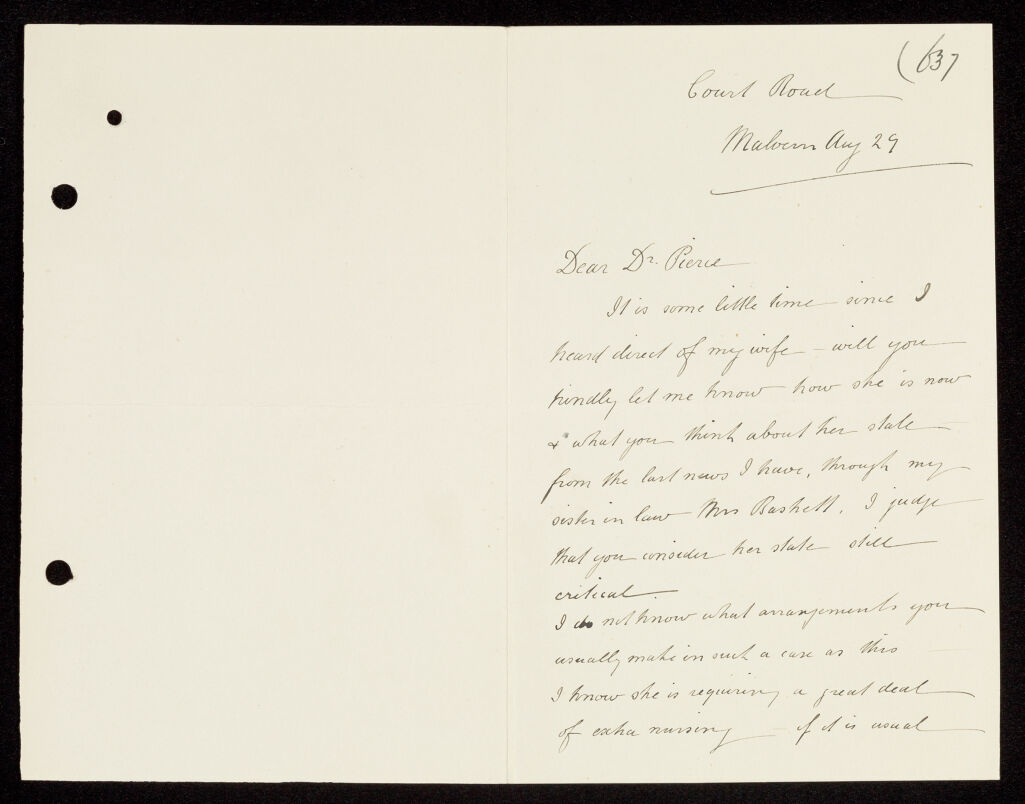 (637
Court Road
Malvern Aug 29
Dear Dr. Pierce
It is some little time since I
heard direct of my wife - will you
kindly let me know how she is now
& what you think about her state
from the last news I have, through my
sister in law Mrs Baskett, I judge
that you consider her state still
critical
I do not know what arrangements you
usually make in such a case as this
I know she is requiring a great deal
of extra nursing - if it is usual